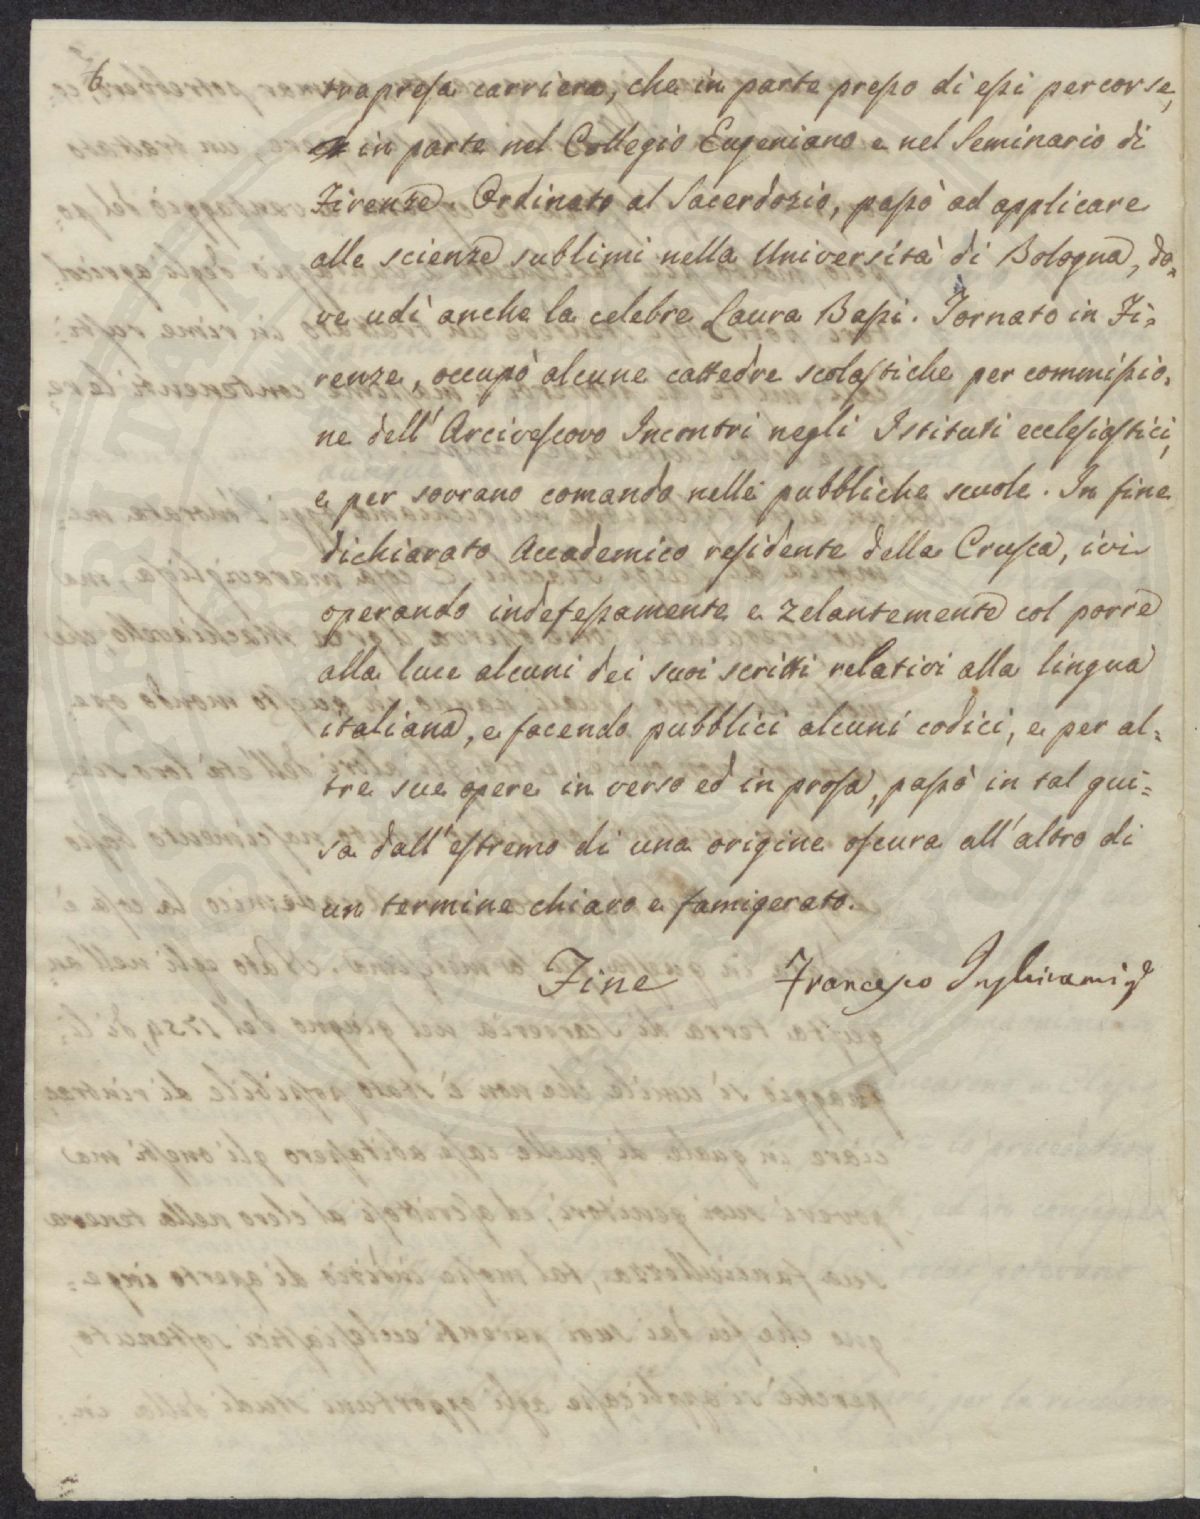 6
trapresa carriera, che in parte presso di essi percorse,
in parte nel Collegio Eugeniano e nel Seminario di
Firenze. Ordinato al Sacerdozio, passò ad applicare
alle scienze sublimi nella Università di Bologna, do=
ve udì anche la celebre Laura Bassi. Tornato in Fi=
renze, occupò alcune cattedre scolastiche per commissio=
ne dell'Arcivescovo Incontri negli Istituti ecclesiastici,
e per sovrano comando nelle pubbliche scuole. In fine
dichiarato Accademico residente della Crusca, ivi
operando indefessamente e zelantemente col porre
alla luce alcuni dei suoi scritti relativi alla lingua
italiana, e facendo pubblici alcuni codici, e per al=
tre sue opere in verso ed in prosa, passò in tal gui=
sa dall'estremo di una origine oscura all'altro di
un termine chiaro e famigerato.
Fine Francesco Inghirami